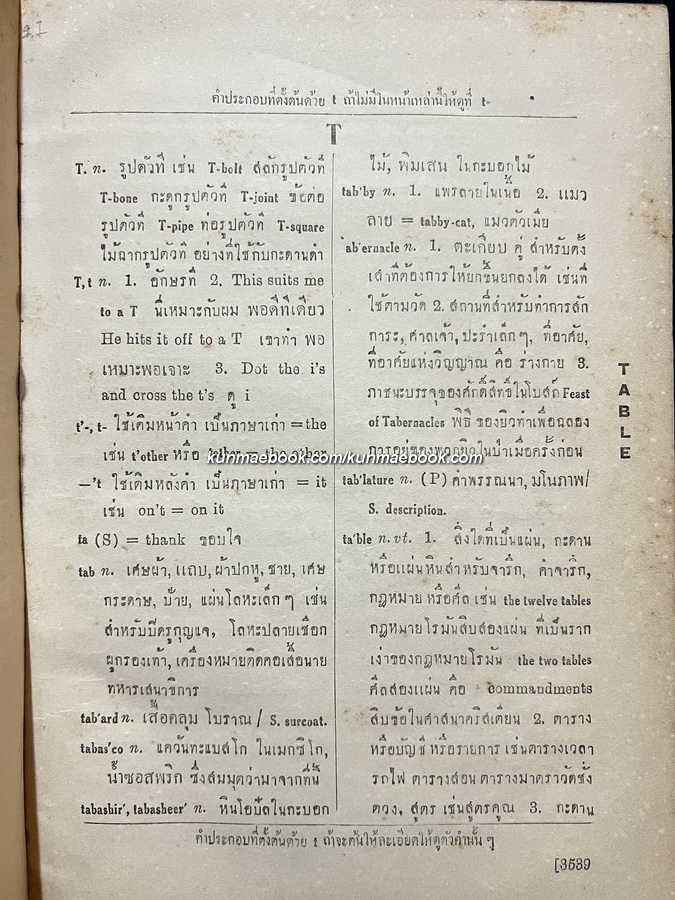 คำประกอบที่ตั้งต้นด้วย t ถ้าไม่มีในหน้าเหล่านี้ให้ดูที่ t-
T
T. n. รูปตัวที เช่น T-bolt สลักรูปตัวที
T-bone กะดูกรูปตัวที T-joint ข้อต่อ
รูปตัวที T-pipe ท่อรูปตัวที T-square
ไม้ฉากรูปตัวที อย่างที่ใช้กับกะดานดำ
T, t n. 1. อักษรที 2. This suits me
to a T นี่เหมาะกับผม พอดีทีเดียว
He hits it off to a T เขาทำ พอ
เหมาะพอเจาะ 3. Dot the i's
and cross the t's ดู i
t'-, t- ใช้เติมหน้าคำ เป็นภาษาเก่า = the
เช่น t'other หรือ tother = the other
—'t ใช้เติมหลังคำ เป็นภาษาเก่า = it
เช่น on't = on it
ta (S) = thank ขอบใจ
tab n. เศษผ้า, แถบ, ผ้าปกหู, ชาย, เศษ
กระดาษ, ป้าย, แผ่นโลหะเล็กๆ เช่น
สำหรับปิดรูกุญแจ, โลหะปลายเชือก
ผูกรองเท้า, เครื่องหมายติดคอเสื้อนาย
ทหารเสนาธิการ
tab'ard n. เสื้อคลุม โบราณ / S. surcoat.
tabas'co n. แคว้นทะแบสโก ในเมกซิโก,
น้ำซอสพริก ซึ่งสมมุตว่ามาจากที่นี้
tabashir', tabasheer' n. หินโอปัลในกะบอก
ไม้, พิมเสน ในกะบอกไม้
tab'by n. 1. แพรลายในเนื้อ 2. แมว
ลาย = tabby-cat, แมวตัวเมีย
'ab'ernacle n. 1. ตะเกียบ คู่ สำหรับตั้ง
เสาที่ต้องการให้ยกขึ้นยกลงได้ เช่นที่
ใช้ตามวัด 2. สถานที่สำหรับทำการสัก
การะ, ศาลเจ้า, ปะรำเล็กๆ, ที่อาศัย,
ที่อาศัยแห่งวิญญาณ คือ ร่างกาย 3.
ภาชนะบรรจุของศักดิ์สิทธิ์ในโบสถ์ Feast
of Tabernacles พิธี ของยิวทำเพื่อฉลอง
การอยู่ของพวกยิวในป่าเมื่อครั้งก่อน
tab'lature n. (P) คำพรรณนา, มโนภาพ/
S. description.
ta'ble n. vt. 1. สิ่งใดที่เป็นแผ่น, กะดาน
หรือแผ่นหินสำหรับจารึก, คำจารึก,
กฎหมาย หรือศีล เช่น the twelve tables
กฎหมายโรมันสิบสองแผ่น ที่เป็นราก
เง่าของกฎหมายโรมัน the two tables
ศีลสองแผ่น คือ commandments
สิบข้อในศาสนาคริสเตียน 2. ตาราง
หรือบัญชี หรือรายการ เช่นตารางเวลา
รถไฟ ตารางสอน ตารางมาตราวัดชั่ง
ตวง, สูตร เช่นสูตรคูณ 3. กะดาน
TABLE
kunmaebook.com/kunmaebook.com
คำประกอบที่ตั้งต้นด้วย t ถ้าจะค้นให้ละเอียดให้ดูตัวคำนั้น ๆ
[3539